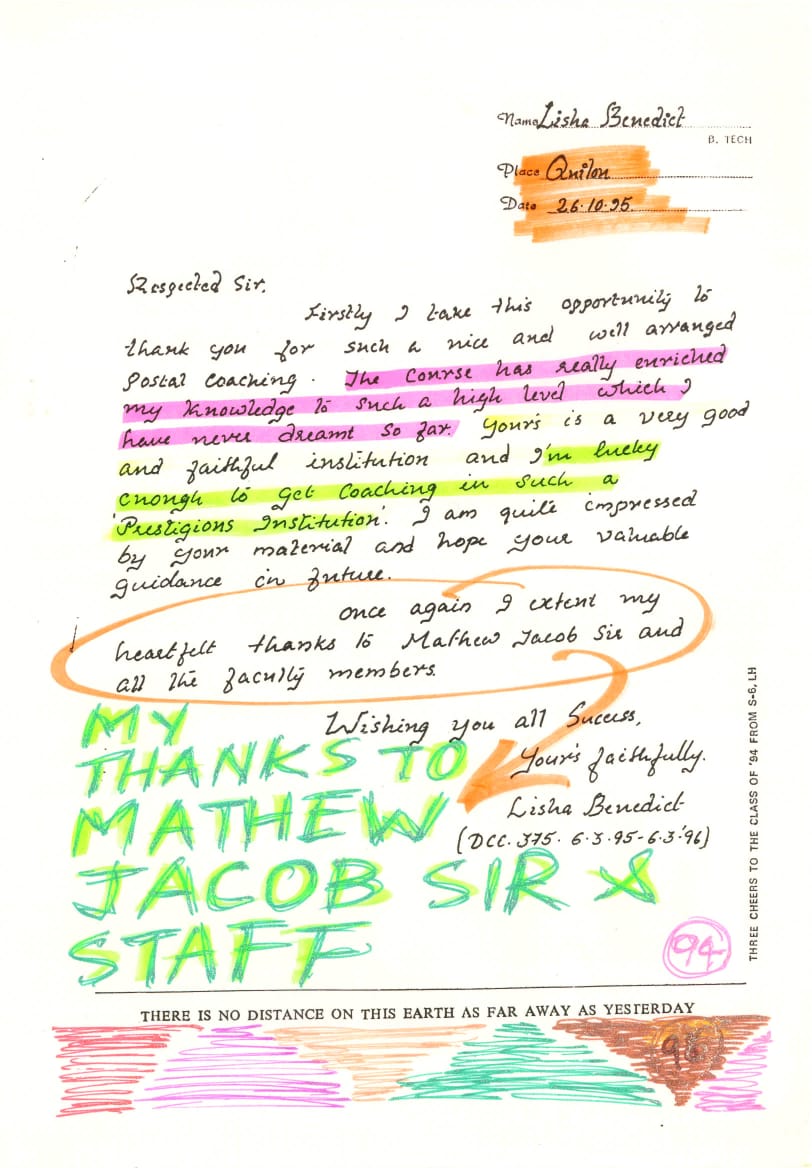 Name Lisha Benedict
B. TECH
Place Quilon
Date 26.10.95.
Respected Sir.
Firstly I take this opportunity to
thank you for such a nice and well arranged
Postal Coaching. The Course has really enriched
my knowledge to such a high level which I
have never dreamt so far. Your's is a very good
and faithful institution and I'm lucky
enough to get Coaching in such a
'Prestigions Institution'. I am quite impressed
by your material and hope your valuable
guidance in future.
once again I extent my
heartfelt thanks to Mathew Jacob Sir and
all the faculty members.
Wishing you all Success,
Your's faithfully.
Lisha Benedict
(DCC. 375. 6.3.95-6.3.'96)
MY
THANKS TO
MATHEW
JACOB SIR &
STAFF
94
THREE CHEERS TO THE CLASS OF '94 FROM S-6, LH
THERE IS NO DISTANCE ON THIS EARTH AS FAR AWAY AS YESTERDAY